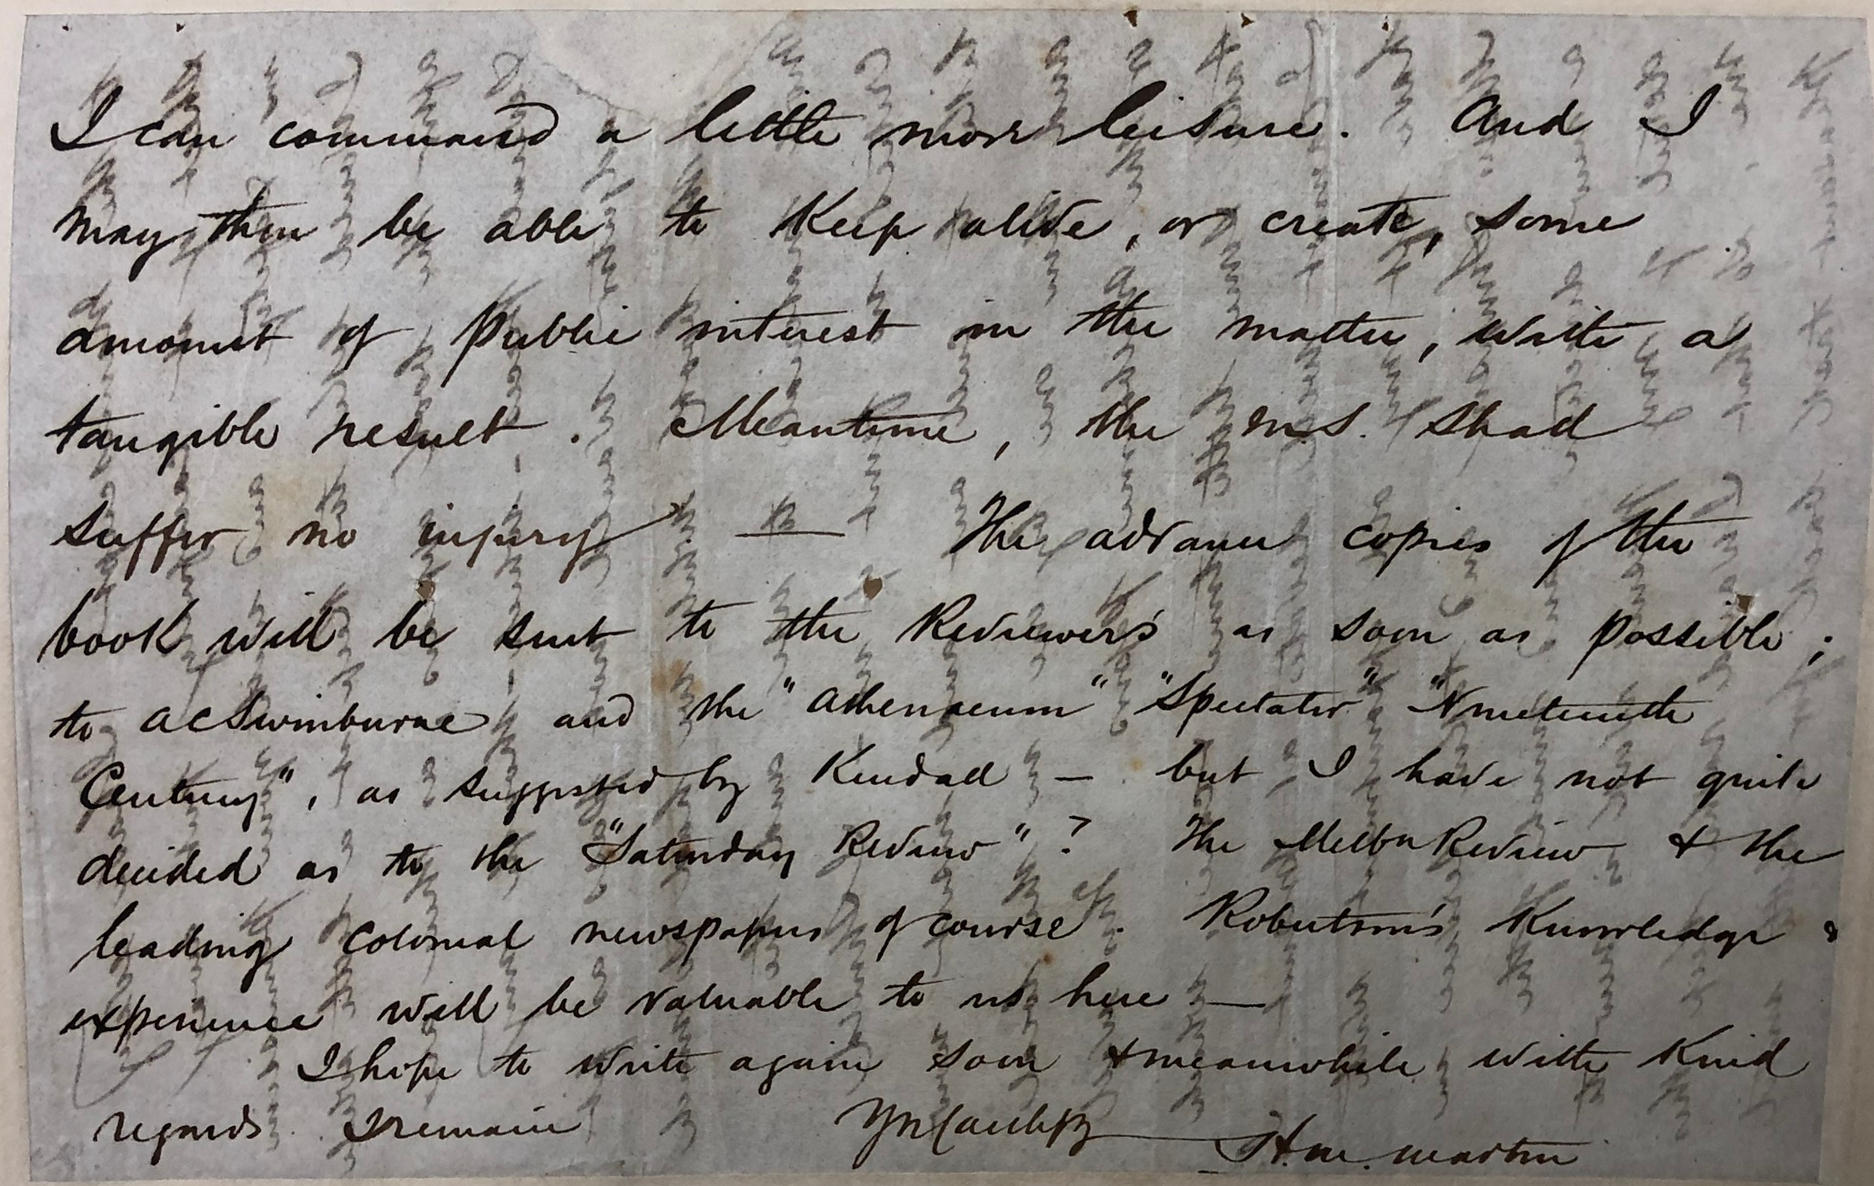 I can command a little more leisure. And I
may then be able to keep alive, or create, some
amount of public interest in the matter, with a
tangible result. Meantime, the M.S. shall
suffer no injury. — The advance copies of the
book will be sent to the Reviewers as soon as possible;
to A C Swinburne and the "Athenaeum" "Spectator" "Nineteenth
Century", as suggested by Kendall — but I have not quite
decided as to the "Saturday Review"? The Melbn Review & the
leading colonial newspapers of course. Robertson's Knowledge &
experience will be valuable to us here —
I hope to write again soon & meanwhile with kind
regards I remain H. M. Martin